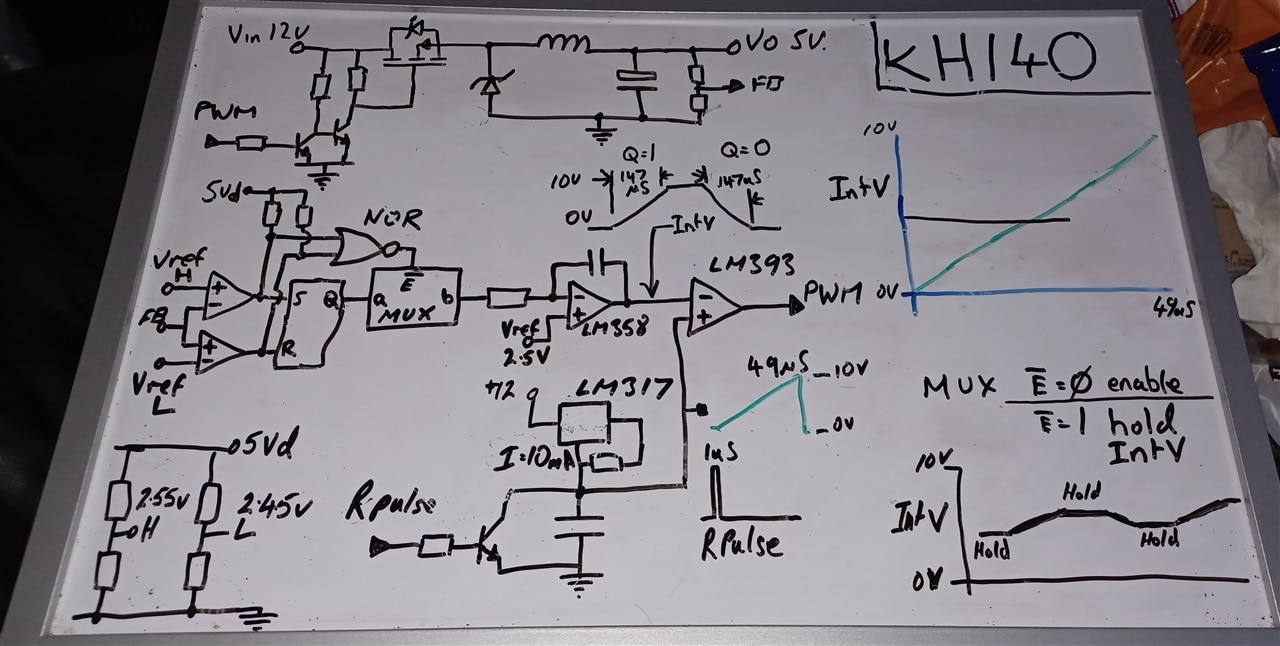 Vin 12V
VO 5V.
KH140
FB
PWM
Q=1
Q=0
10V
147
µS
147µS
0V
IntV
10V
IntV
0V
49µS
5Vd
NOR
Vref
H
FB
Vref
L
S
Q
R
E
a
b
MUX
LM358
Vref
2.5V
LM393
PWM
+12
LM317
I=10mA
49µS
10V
0V
MUX E=Ø enable
E=1 hold
IntV
5Vd
2.55V
2.45V
H
L
Rpulse
1µS
RPulse
10V
Hold
IntV
Hold
Hold
0V